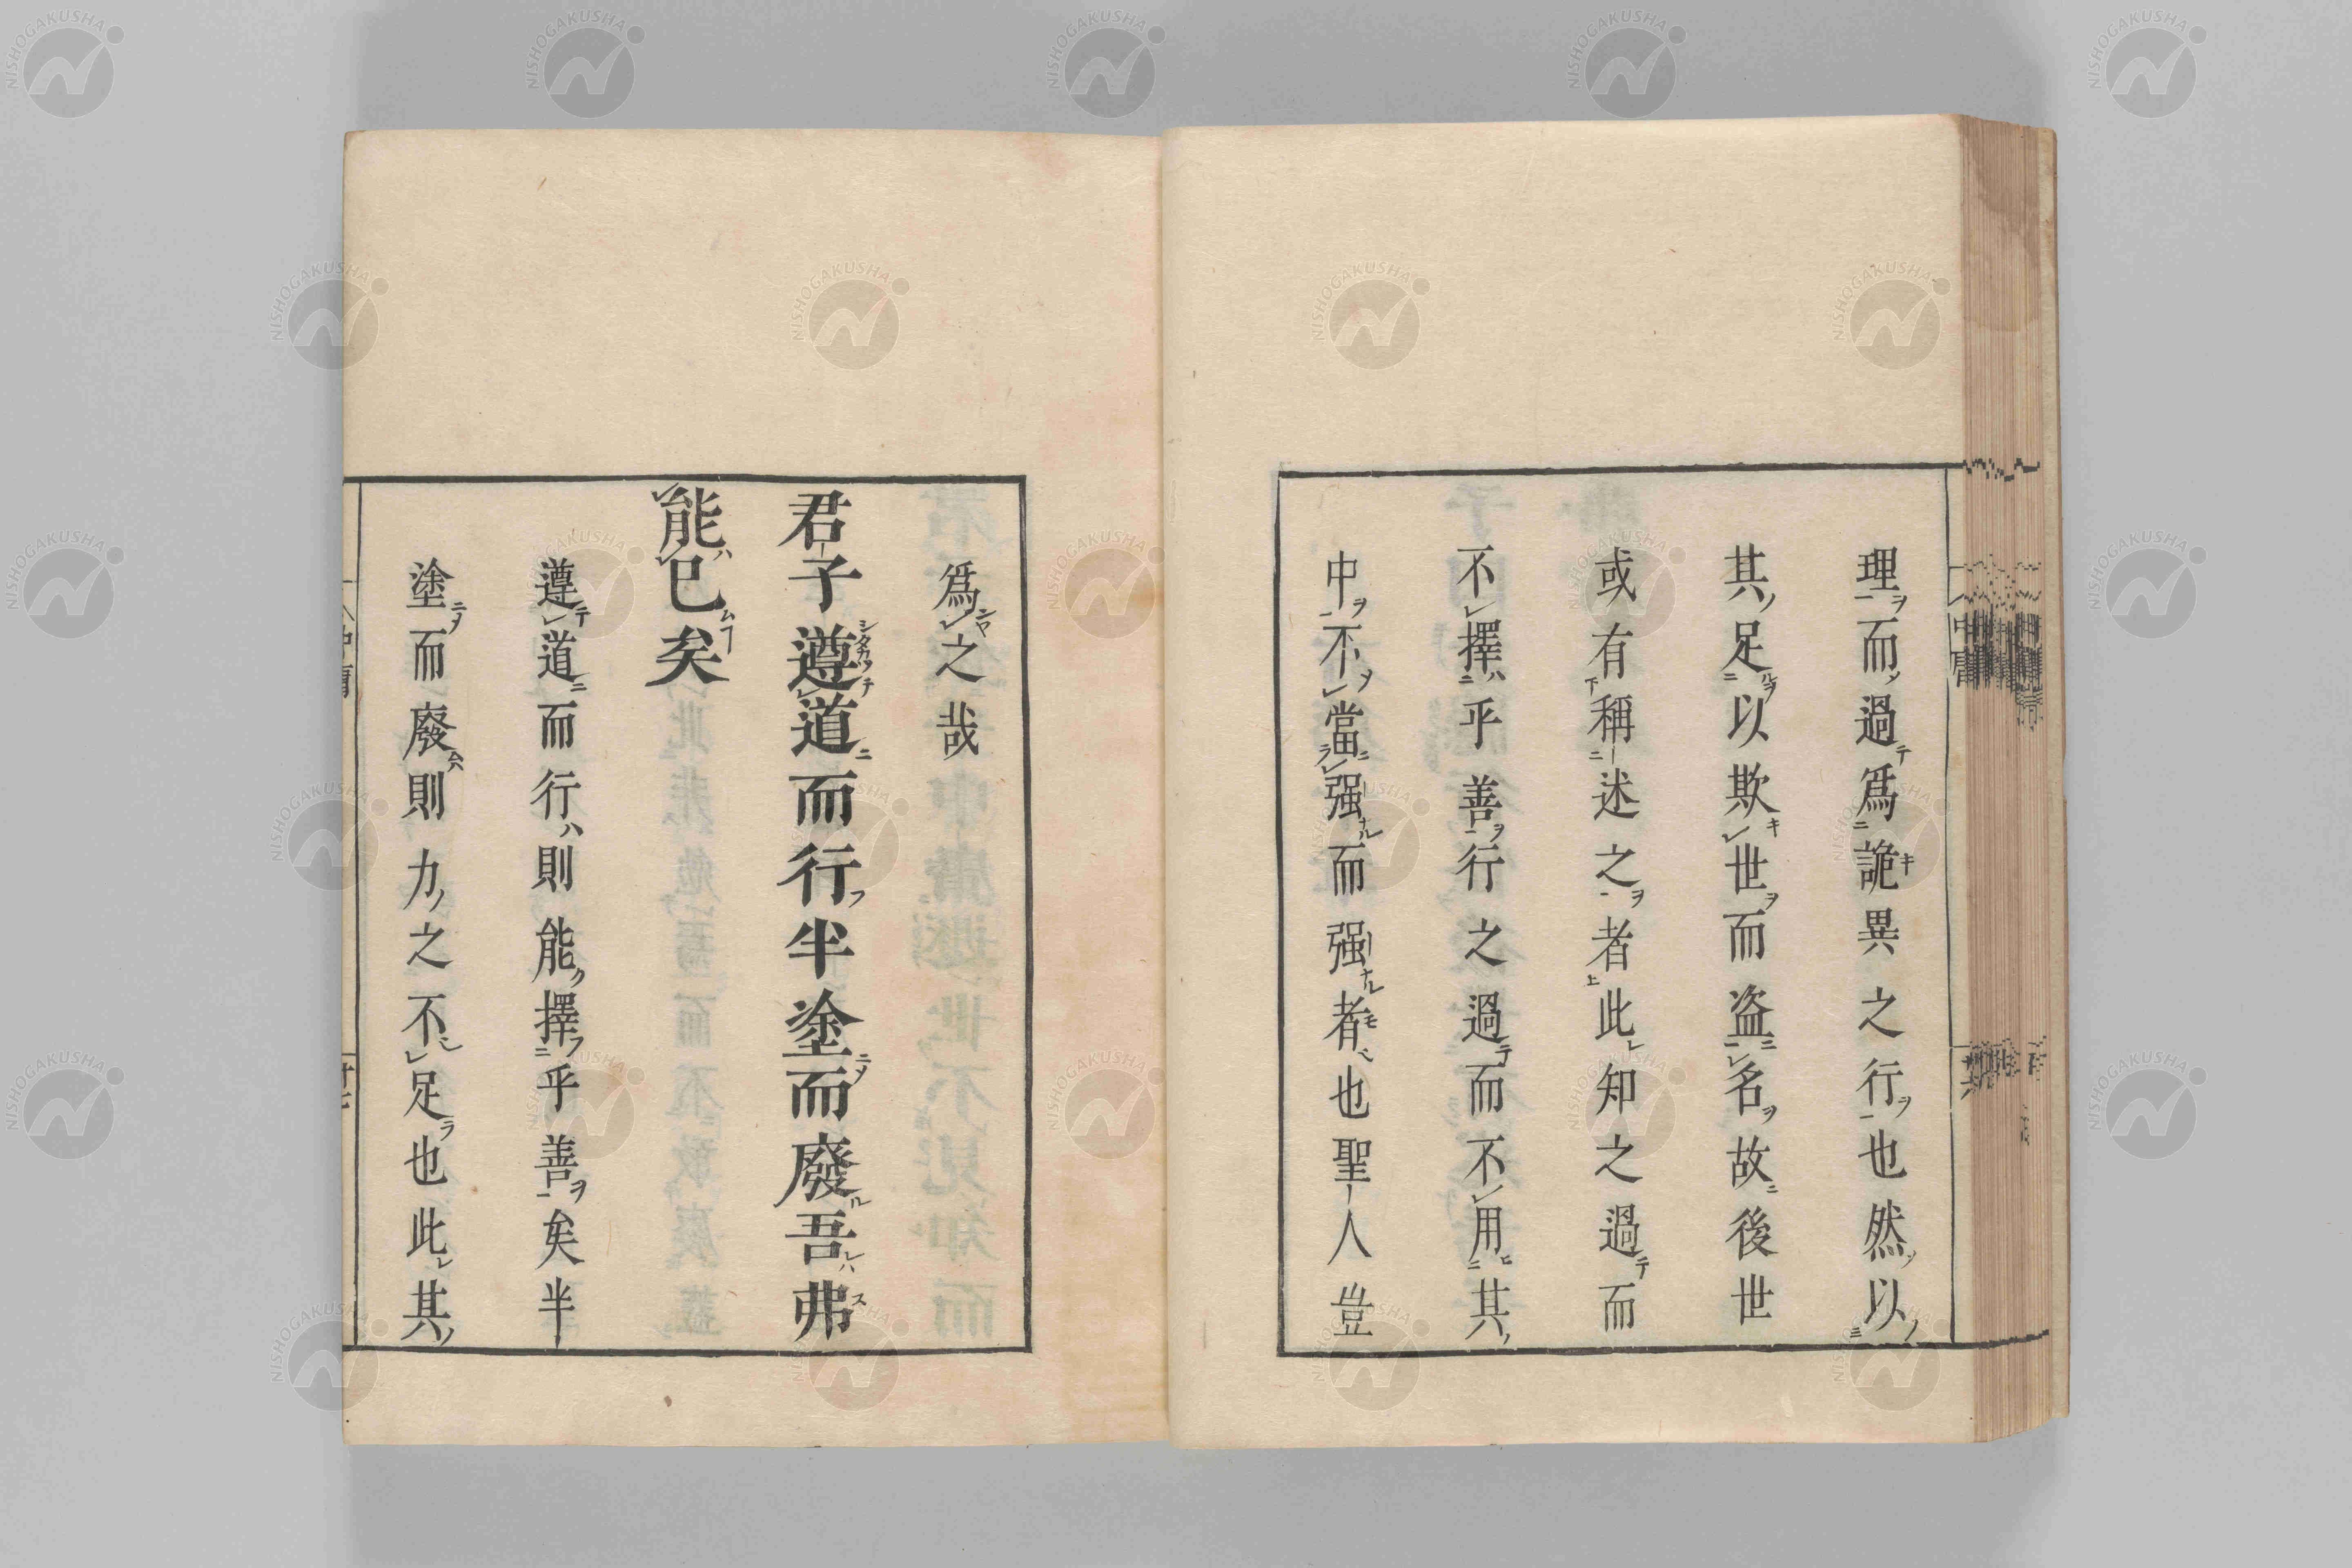 理而過爲詭異之行也然以
其足以欺世而盗名故後世
或有稱述之者此知之過而
不擇乎善行之過而不用其
中不當强而强者也聖人豈
爲之哉
君子遵道而行半塗而廢吾弗
能已矣
遵道而行則能擇乎善矣半
塗而廢則力之不足也此其